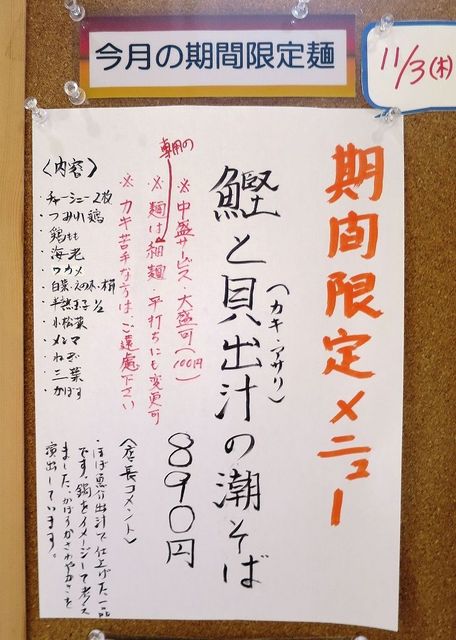 今月の期間限定麺
11/3(木)
期間限定メニュー
鰹と貝出汁の潮そば
(カキ・アサリ)
890円
※中盛サービス・大盛可(100円)
専用の
※麺は細麺 平打ちにも変更可
※カキ苦手な方はご遠慮下さい
〈内容〉
・チャーシュー2枚
・つみれ鶏
・鶏もも
・海老
・ワカメ
・白菜・えのき・椎
・半熟玉子1/2
・小松菜
・メンマ
・ねぎ
・三葉
・かぼす
〈店長コメント〉
・ほぼ魚介出汁で仕上げた一品
です。鍋をイメージして考え
ました、かぼすがさわやかさを
演出しています。